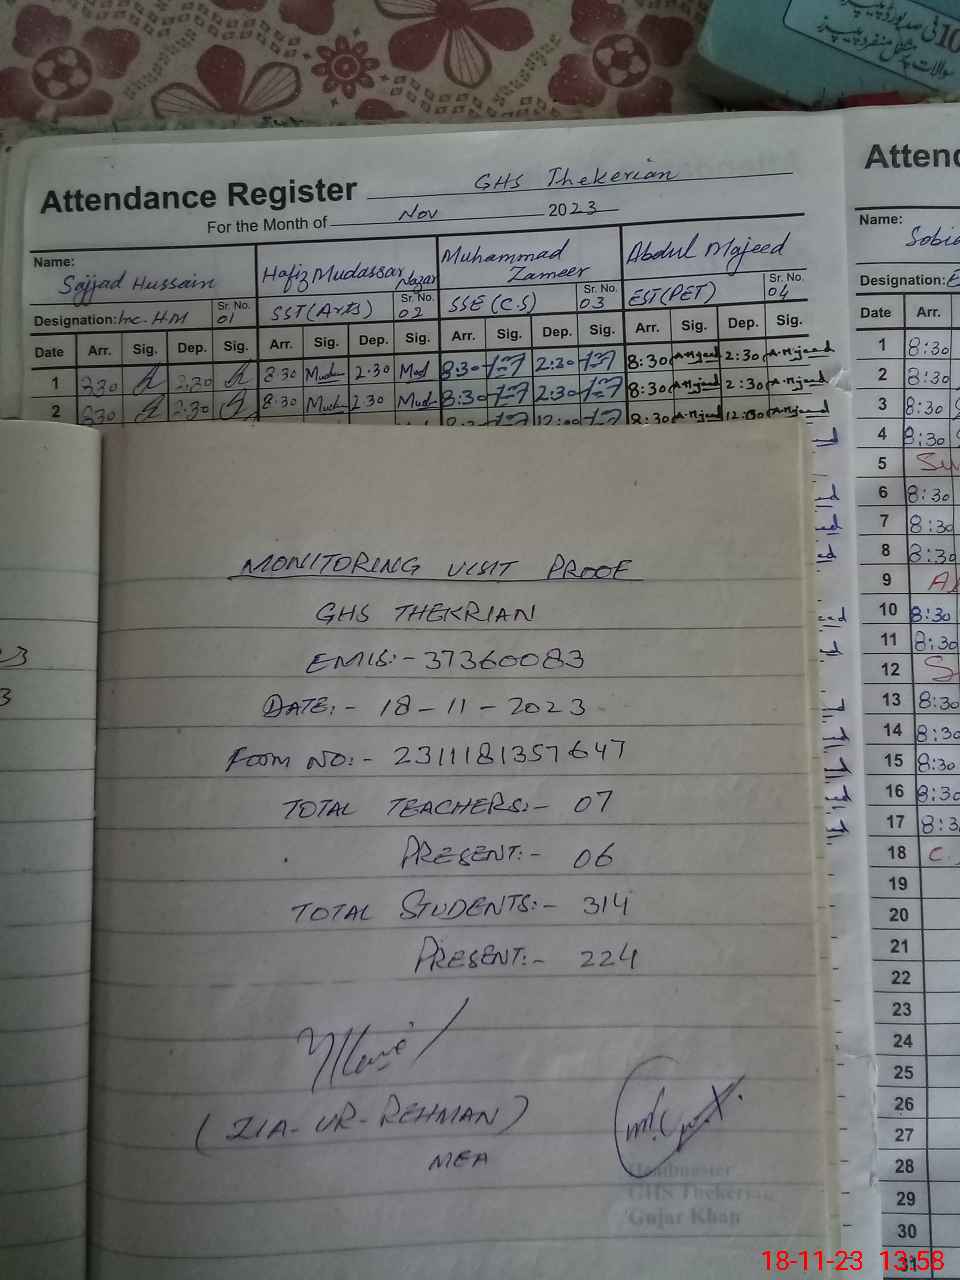 10
Attendance Register GHS Thekerian
For the Month of Nov 2023
Name: Sajjad Hussain Hafiz Mudassar Nazar Muhammad Zameer Abdul Majeed
Designation: Inc. HM Sr. No. 01 SST (Arts) Sr. No. 02 SSE (C.S) Sr. No. 03 EST (PET) Sr. No. 04
Date Arr. Sig. Dep. Sig. Arr. Sig. Dep. Sig. Arr. Sig. Dep. Sig. Arr. Sig. Dep. Sig.
1 830 2:30 8:30 2:30 8:30 2:30 8:30 2:30
2 830 2:30 8:30 2:30 8:30 2:30 8:30 2:30
8:30 12:00
MONITORING VISIT PROOF
GHS THEKRIAN
EMIS:- 37360083
DATE:- 18-11-2023
FORM NO:- 231118135764T
TOTAL TEACHERS:- 07
PRESENT:- 06
TOTAL STUDENTS:- 314
PRESENT:- 224
(ZIA-UR-REHMAN)
MEA
Headmaster
GHS Thekerian
Gujar Khan
Name:
Designation: E
Date Arr.
1 8:30
2 8:30
3 8:30
4 8:30
5
6 8:30
7 8:30
8 8:30
9
10 8:30
11 8:30
12
13 8:30
14 8:30
15 8:30
16 8:30
17 8:3
18 C.
19
20
21
22
23
24
25
26
27
28
29
30
31
18-11-23 13:58